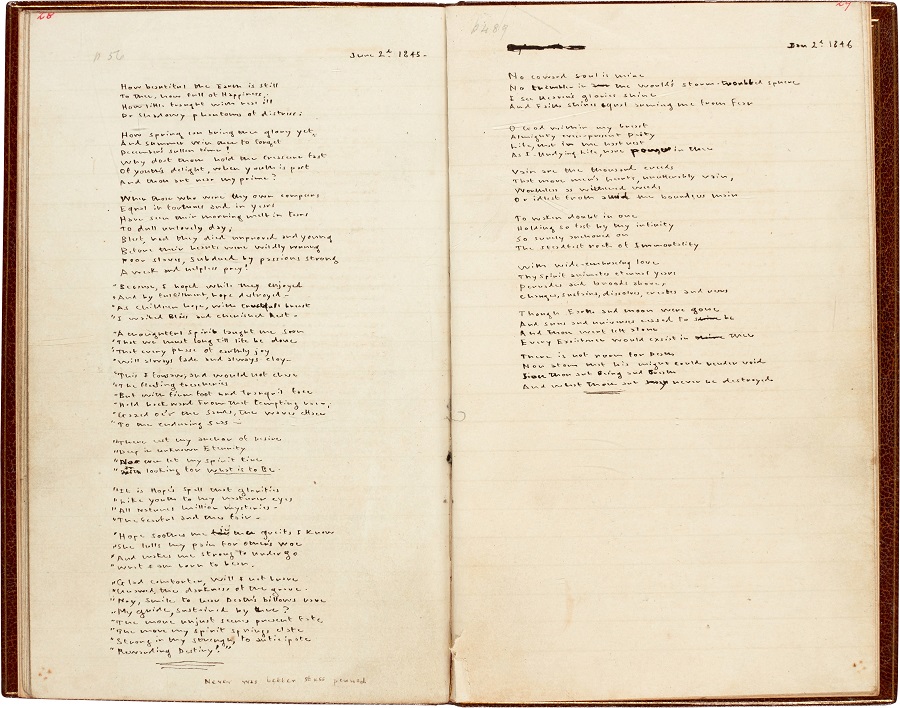 28
June 2d 1845-
How beautiful the Earth is still
To thee, how full of Happiness;
How little fraught with real ill
Or Shadowy phantoms of distress;
How spring can bring thee glory yet,
And summer win thee to forget
December's sullen time!
Why dost thou hold the treasure fast
Of youth's delight, when youth is past
And thou art near thy prime?
When those who were thy own compeers
Equal in fortunes and in years
Have seen their morning melt in tears
To dull unlovely day;
Blest, had they died unproved and young
Before their hearts were wildly wrung
Poor slaves, subdued by passions strong
A weak and helpless prey!
"Because, I hoped while they enjoyed
"And by fulfilment, hope destroyed-
"As children hope, with trustful breast
"I waited Bliss and cherished Rest-
"A thoughtful Spirit taught me soon
"That we must long till life be done
"That every phase of earthly joy
"Will always fade and always cloy-
"This I foresaw, and would not chase
"The fleeting treacheries
"But with firm foot and tranquil face
"Held backward from that tempting race,
"Gazed o'er the sands, the waves efface
"To the enduring seas-
"There cast my anchor of desire
"Deep in unknown Eternity
"Nor ever let my Spirit tire
"With looking for What is to Be.
"It is Hope's spell that glorifies
"Like youth to my maturer eyes
"All Nature's million mysteries-
"The fearful and the fair-
"Hope soothes me in the griefs I know
"She lulls my pain for others' woe
"And makes me strong to undergo
"What I am born to bear.
"Glad comforter, will I not brave
"Unawed the darkness of the grave
"Nay, smile to hear Death's billows rave
"My guide, sustained by thee?
"The more unjust seems present fate
"The more my Spirit springs elate
"Strong in thy strength, to anticipate
"Rewarding Destiny!"
Never was better stuff penned
Jan 2d 1846
No coward soul is mine
No trembler in the world's storm-troubled sphere
I see Heaven's glories shine
And Faith shines equal arming me from Fear
O God within my breast
Almighty ever-present Deity
Life, that in me hast rest
As I Undying Life, have power in thee
Vain are the thousand creeds
That move men's hearts, unutterably vain,
Worthless as withered weeds
Or idlest froth amid the boundless main
To waken doubt in one
Holding so fast by thy infinity
So surely anchored on
The steadfast rock of Immortality
With wide-embracing love
Thy Spirit animates eternal years
Pervades and broods above,
Changes, sustains, dissolves, creates and rears
Though Earth and moon were gone
And suns and universes ceased to be
And Thou wert left alone
Every Existence would exist in thee
There is not room for Death
Nor atom that his might could render void
Since thou art Being and Breath
And what thou art may never be destroyed